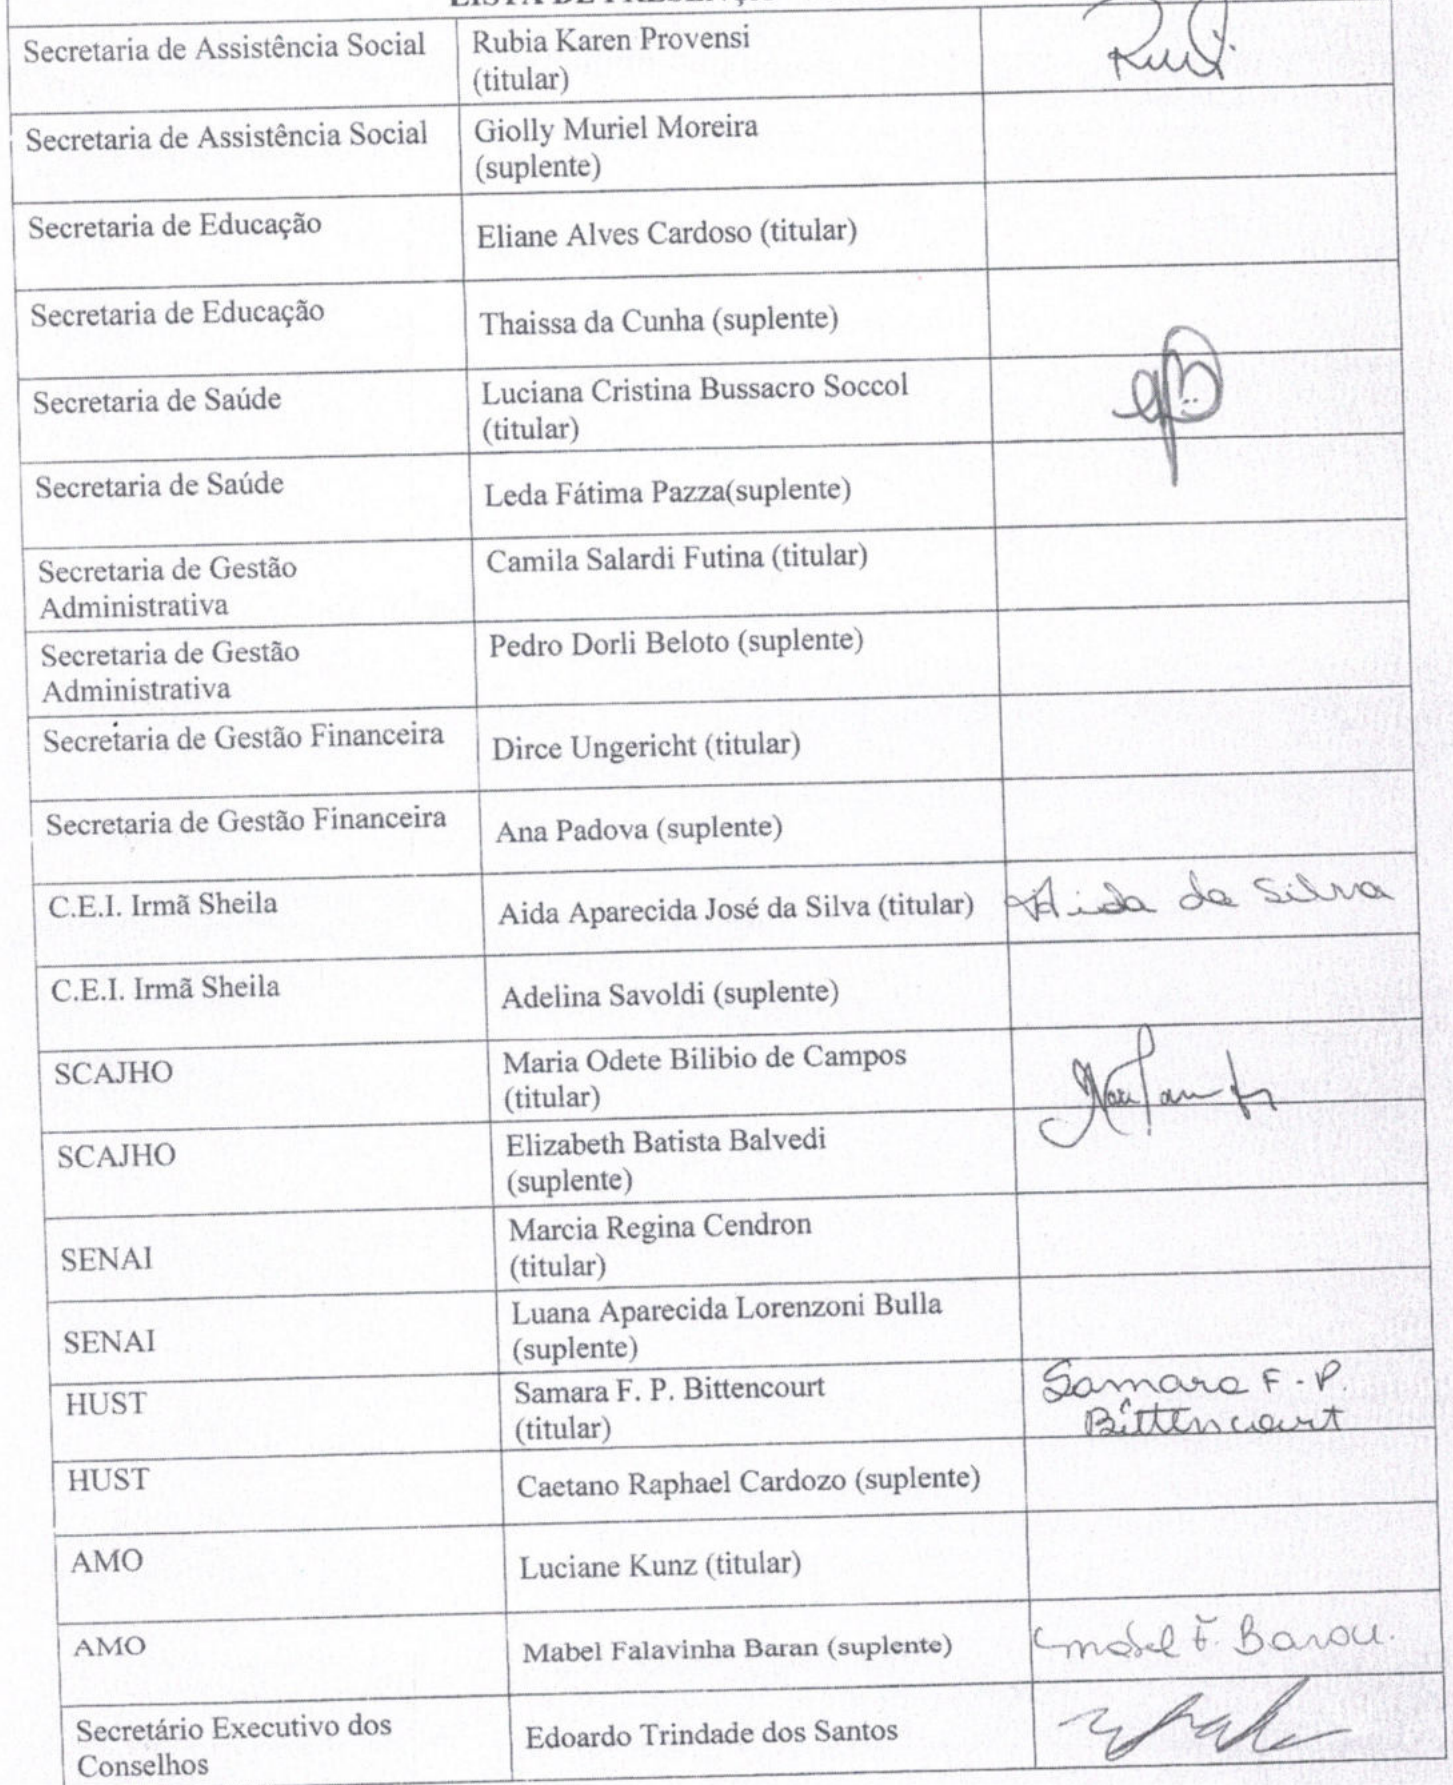 LISTA DE PRESENÇA
Secretaria de Assistência Social
Rubia Karen Provensi
(titular)
Secretaria de Assistência Social
Giolly Muriel Moreira
(suplente)
Secretaria de Educação
Eliane Alves Cardoso (titular)
Secretaria de Educação
Thaissa da Cunha (suplente)
Secretaria de Saúde
Luciana Cristina Bussacro Soccol
(titular)
Secretaria de Saúde
Leda Fátima Pazza(suplente)
Secretaria de Gestão
Administrativa
Camila Salardi Futina (titular)
Secretaria de Gestão
Administrativa
Pedro Dorli Beloto (suplente)
Secretaria de Gestão Financeira
Dirce Ungericht (titular)
Secretaria de Gestão Financeira
Ana Padova (suplente)
C.E.I. Irmã Sheila
Aida Aparecida José da Silva (titular)
Aida da Silva
C.E.I. Irmã Sheila
Adelina Savoldi (suplente)
SCAJHO
Maria Odete Bilibio de Campos
(titular)
SCAJHO
Elizabeth Batista Balvedi
(suplente)
SENAI
Marcia Regina Cendron
(titular)
SENAI
Luana Aparecida Lorenzoni Bulla
(suplente)
HUST
Samara F. P. Bittencourt
(titular)
Samara F. P.
Bittencourt
HUST
Caetano Raphael Cardozo (suplente)
AMO
Luciane Kunz (titular)
AMO
Mabel Falavinha Baran (suplente)
Mabel F. Baran.
Secretário Executivo dos
Conselhos
Edoardo Trindade dos Santos